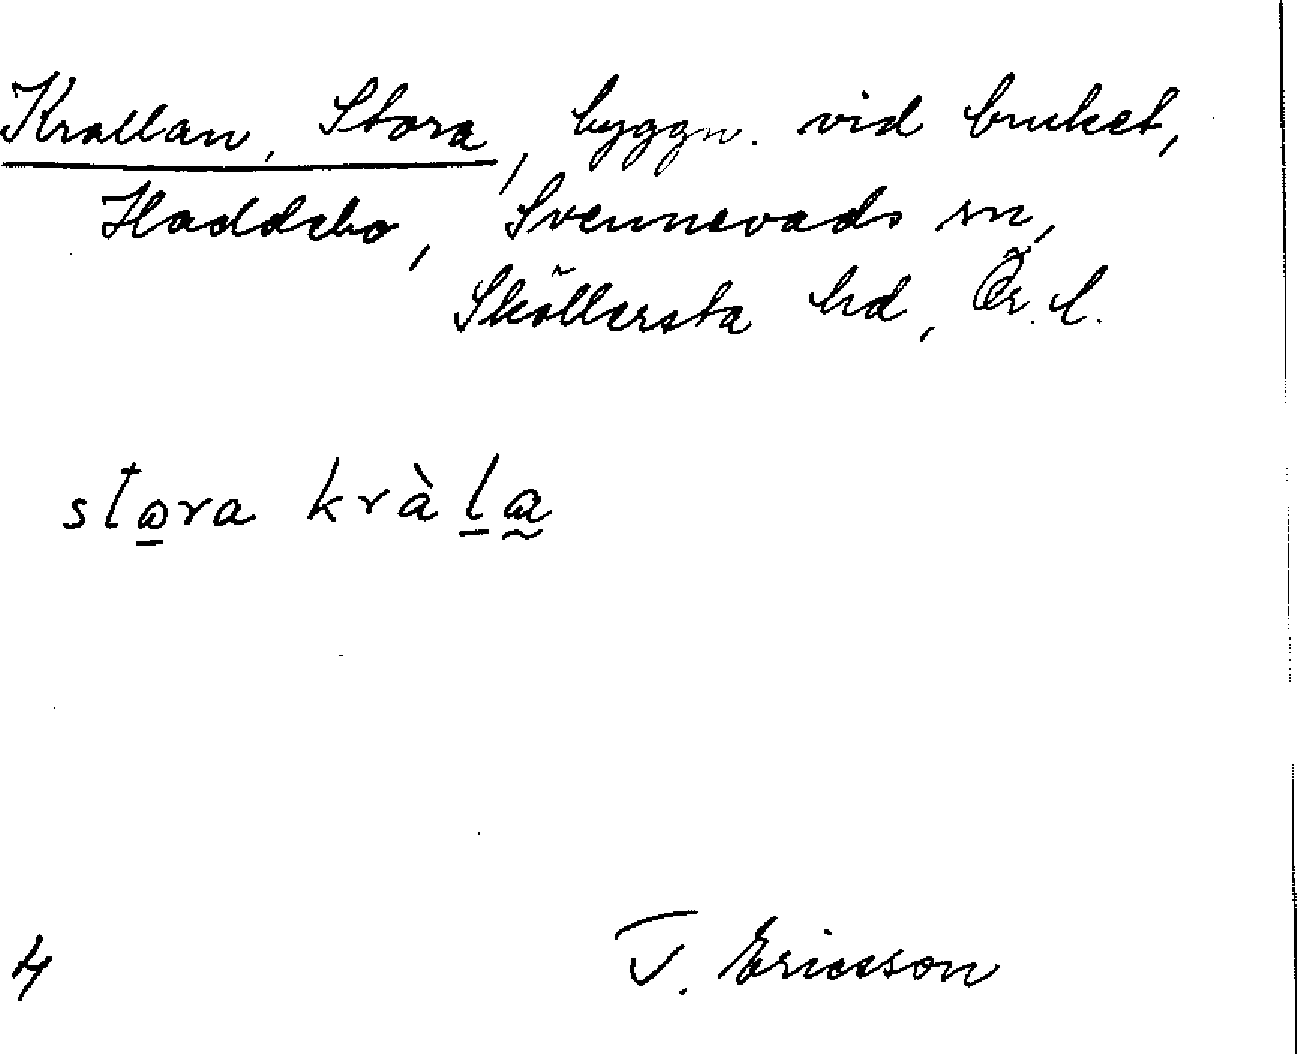 Krallan, Stora, byggn. vid bruket,
Haddebo, Svennevads sn,
Sköllersta hd, Ör. l.
stⱺra kràlⱥ
4
T. Ericsson